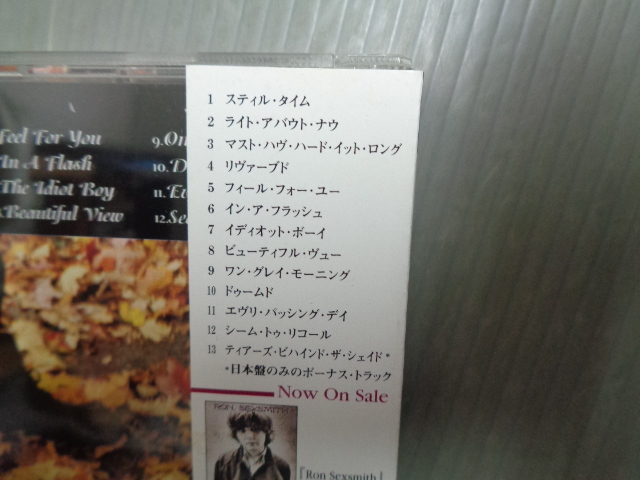 Feel For You
In A Flash
The Idiot Boy
Beautiful View
9. On
10. D
11. Ev
12. See
1 スティル・タイム
2 ライト・アバウト・ナウ
3 マスト・ハヴ・ハード・イット・ロング
4 リヴァーブド
5 フィール・フォー・ユー
6 イン・ア・フラッシュ
7 イディオット・ボーイ
8 ビューティフル・ヴュー
9 ワン・グレイ・モーニング
10 ドゥームド
11 エヴリ・パッシング・デイ
12 シーム・トゥ・リコール
13 ティアーズ・ビハインド・ザ・シェイド*
*日本盤のみのボーナス・トラック
Now On Sale
RON SEXSMITH
「Ron Sexsmith」